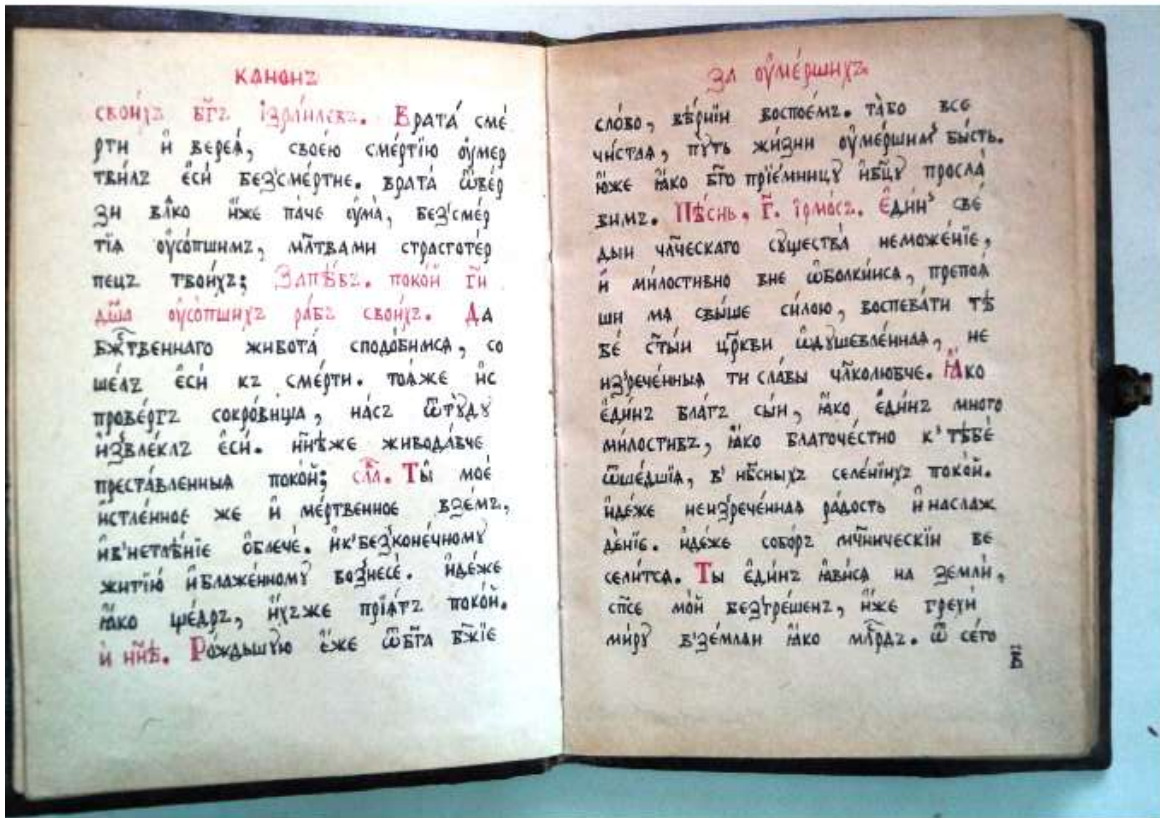 канонъ
свои́хъ бг҃ъ і҆зра́илевъ. Врата́ сме́
рти и҆ верея̀, свое́ю сме́ртїю ᲂу҆мер
тви́лъ є҆сѝ без̾сме́ртне. врата̀ ѿве́р
зи влⷣко ꙗ҆́же па́че ᲂу҆ма̀, без̾сме́р
тїѧ ᲂу҆со́пшимъ, мл҃твами страсготе́р
пецъ твои́хъ; Запѣ́въ. поко́й гⷭ҇и
дш҃а ᲂу҆со́пшихъ ра́бъ свои́хъ. Да
бж҃твеннаго живота́ сподо́бимсѧ, со
ше́лъ є҆сѝ къ сме́рти. тоѧ́же и҆с
прове́ргъ сокро́вища, на́съ ѿтꙋ́дꙋ
и҆звле́клъ є҆сѝ. нн҃ѣже живода́вче
преста́вленныѧ поко́й; сла. Ты̀ мое́
и҆стле́нное же и҆ ме́ртвенное взе́мъ,
и҆в̾нетлѣ́нїе ѻ҆блечѐ. и҆к̾без̾коне́чномꙋ
житїю̀ и҆блаже́нномꙋ вознесѐ. и҆дѣ́же
ꙗ҆́ко ще́дръ, и҆́хъже прїѧ́тъ поко́й.
и҆ нн҃ѣ. Ра́ждьшꙋю є҆́же ѿбг҃а бж҃їе
за ᲂу҆ме́ршихъ.
сло́во, вѣ́рнїи воспое́мъ. та́бо все
чи́стаѧ, пꙋ́ть жи́зни ᲂу҆ме́ршимъ бы́сть.
ю҆́же ꙗ҆́ко бг҃о прїе́мницꙋ и҆бц҃ꙋ просла́
вимъ. Пѣ́снь, г҃. і҆рмо́съ. Є҆ди́н̾ све́
дыи чл҃ческаго сꙋщества̀ неможе́нїе,
и҆ ми́лостивно вне ѡ҆болки́исѧ, препоѧ́
ши мѧ свы́ше си́лою, воспева́ти тѣ
бе́ ст҃ы́и цр҃кви ѡ҆дꙋшевле́ннаѧ, не
из̾рече́нныѧ ти сла́вы чл҃колюбче. Ꙗ҆́ко
є҆ди́нъ бла́гъ сы́и, ꙗ҆́ко є҆ди́нъ много
ми́лостивъ, ꙗ҆́ко благоче́стно к̾ тѣбѐ
ѿше́дшїѧ, в̾ нб҃сныхъ селе́нїихъ поко́й.
и҆дѣ́же неизрече́ннаѧ ра́дость и҆ наслаж
де́нїе. и҆дѣ́же собо́ръ мч҃ническїи ве
сели́тсѧ. Ты є҆ди́нъ ꙗ҆ви́сѧ на земли̂,
сп҃се мо́й без̾гре́шенъ, и҆́же грехѝ
ми́рꙋ в̾зе́млѧи ꙗ҆́ко млрⷣъ. ѿ сего̀